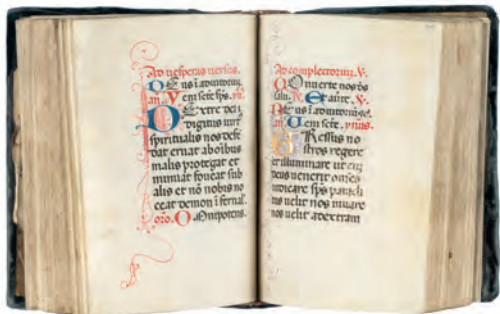 Ad vesperas versus.
Deus ī adiutorium
an. Veni scte sps. yn.
Dextre dei
digitus virt
spiritualis nos defē
dat eruat aboibus
malis protegat et
muniat foueat sub
alis et nō nobis no
ceat demon ifernal.
oro. Omnipotens.
Ad complectorium. V.
Conuerte nos ds
Et auerte. V.
Deus ī adiutoriū
an. Veni scte. ynus.
Gressus no
stros regere
et illuminare ut cum
deus uenerit omēs
iudicare sps paracli
tus uelit nos iuuare
nos uelit ad extram